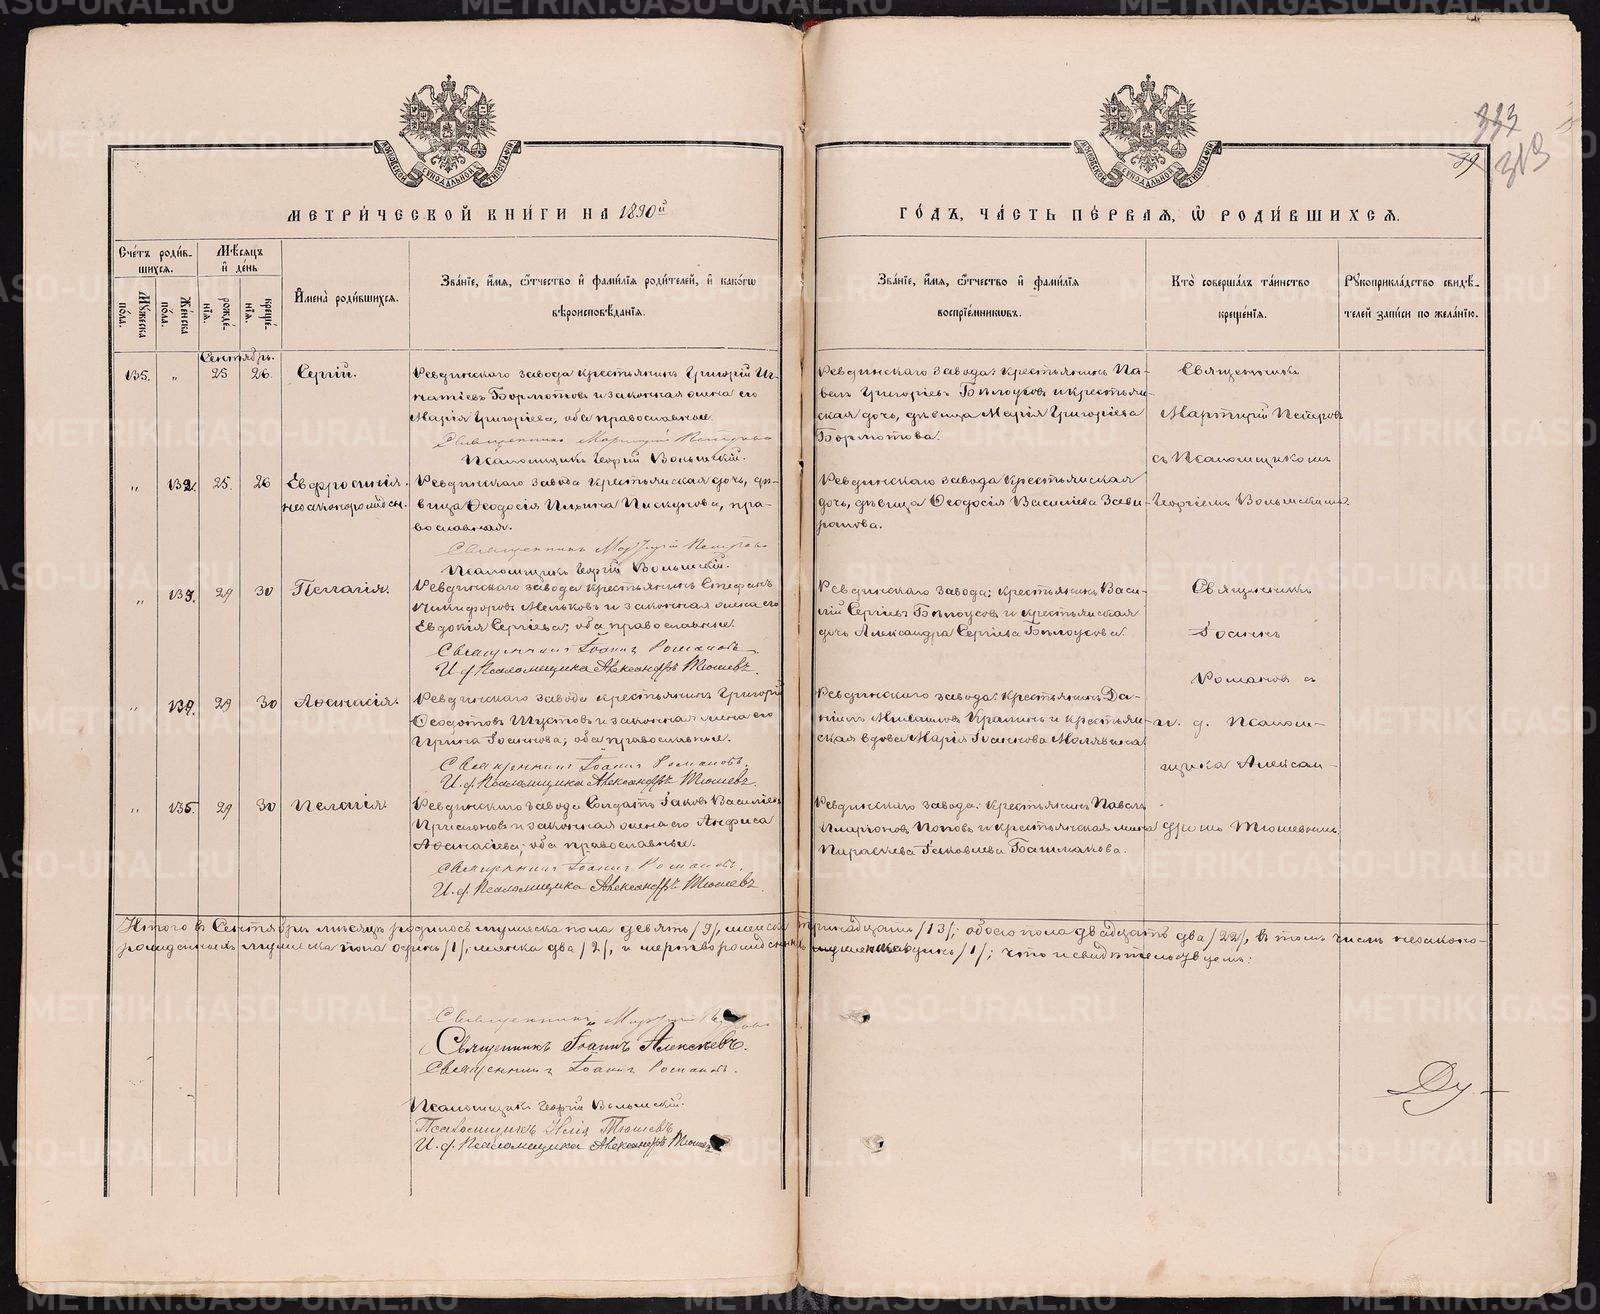 МЕТРИ́ЧЕСКОЙ КНИ́ГИ НА 1890й
ГО́ДЪ, ЧА́СТЬ ПЕ́РВАЯ, Ѡ РОДИ́ВШИХСЯ.
333
39 313
Сче́тъ роди́в-
шихся.
Мужеска
по́ла.
Же́нска
по́ла.
Мѣ́сяцъ
и де́нь
рожде́-
нїя.
креще́-
нїя.
Имена̀ роди́вшихся.
Зва́нїе, и́мя, ѿчество и фами́лїя роди́телей, и како́гѡ
вѣроисповѣ́данїя.
Зва́нїе, и́мя, ѿчество и фами́лїя
воспрїе́мникѡвъ.
Кто̀ соверша́лъ та́инство
креще́нїя.
Рукоприкла́дство свидѣ́-
телей за́писи по жела́нїю.
Сентябрь.
135. „ 25 26. Сергій.
Ревдинскаго завода крестьянинъ Григорій Иг-
натіевъ Бормотовъ и законная жена его
Марія Григоріева, оба православные.
Священникъ Мартирій Петровъ
Псаломщикъ Георгій Волынскій.
Ревдинскаго завода: крестьянинъ Па-
велъ Григоріевъ Бѣлоусовъ и крестьян-
ская дочь, дѣвица Марія Григоріева
Бормотова.
Священникъ
Мартирій Петровъ
съ Псаломщикомъ
Георгіемъ Волынскимъ.
„ 132. 25. 26 Евфросинія.
незаконорожден.
Ревдинскаго завода крестьянская дочь, дѣ-
вица Ѳеодосія Пискунова, пра-
вославная.
Священникъ Мартирій Петровъ
Псаломщикъ Георгій Волынскій.
Ревдинскаго завода крестьянская
дочь, дѣвица Ѳеодосія Василіева
„ 133. 29 30 Пелагія.
Ревдинскаго завода крестьянинъ Стефанъ
Никифоровъ Мельковъ и законная жена его
Евдокія Сергіева; оба православные.
Священникъ Іоаннъ Романовъ.
И. д. Псаломщика Александръ Тюшевъ.
Ревдинскаго завода: крестьянинъ Васи-
лій Сергіевъ Бѣлоусовъ и крестьянская
дочь Александра Сергіева Бѣлоусова.
Священникъ
Іоаннъ
Романовъ съ
и. д. псалом-
щика Алексан-
дромъ Тюшевымъ.
„ 134. 29 30 Аѳанасія.
Ревдинскаго завода крестьянинъ Григорій
Ѳеодотовъ Шустовъ и законная жена его
Ирина Іоаннова; оба православные.
Священникъ Іоаннъ Романовъ.
И. д. Псаломщика Александръ Тюшевъ.
Ревдинскаго завода: крестьянинъ Да-
ніилъ и крестьян-
ская вдова Марія Іоаннова
„ 135. 29 30 Пелагія.
Ревдинскаго завода Солдатъ Іаковъ Василіевъ
и законная жена его Анфиса
Аѳанасіева; оба православные.
Священникъ Іоаннъ Романовъ.
И. д. Псаломщика Александръ Тюшевъ.
Ревдинскаго завода: крестьянинъ Павелъ
Поповъ и крестьянская жена
Параскева Іаковлева Башмакова.
Итого въ Сентябрѣ мѣсяцѣ родилось мужеска пола девять /9/, женска тринадцать /13/; обоего пола двадцать два /22/, въ томъ числѣ незаконо-
рожденныхъ мужеска пола одинъ /1/, женска два /2/, и мертворожденныхъ одинъ /1/; что и свидѣтельствуемъ:
Священникъ Мартирій Петровъ
Священникъ Іоаннъ Алексѣевъ.
Священникъ Іоаннъ Романовъ.
Псаломщикъ Георгій Волынскій.
Псаломщикъ Илія Тюшевъ
И. д. Псаломщика Александръ Тюшевъ